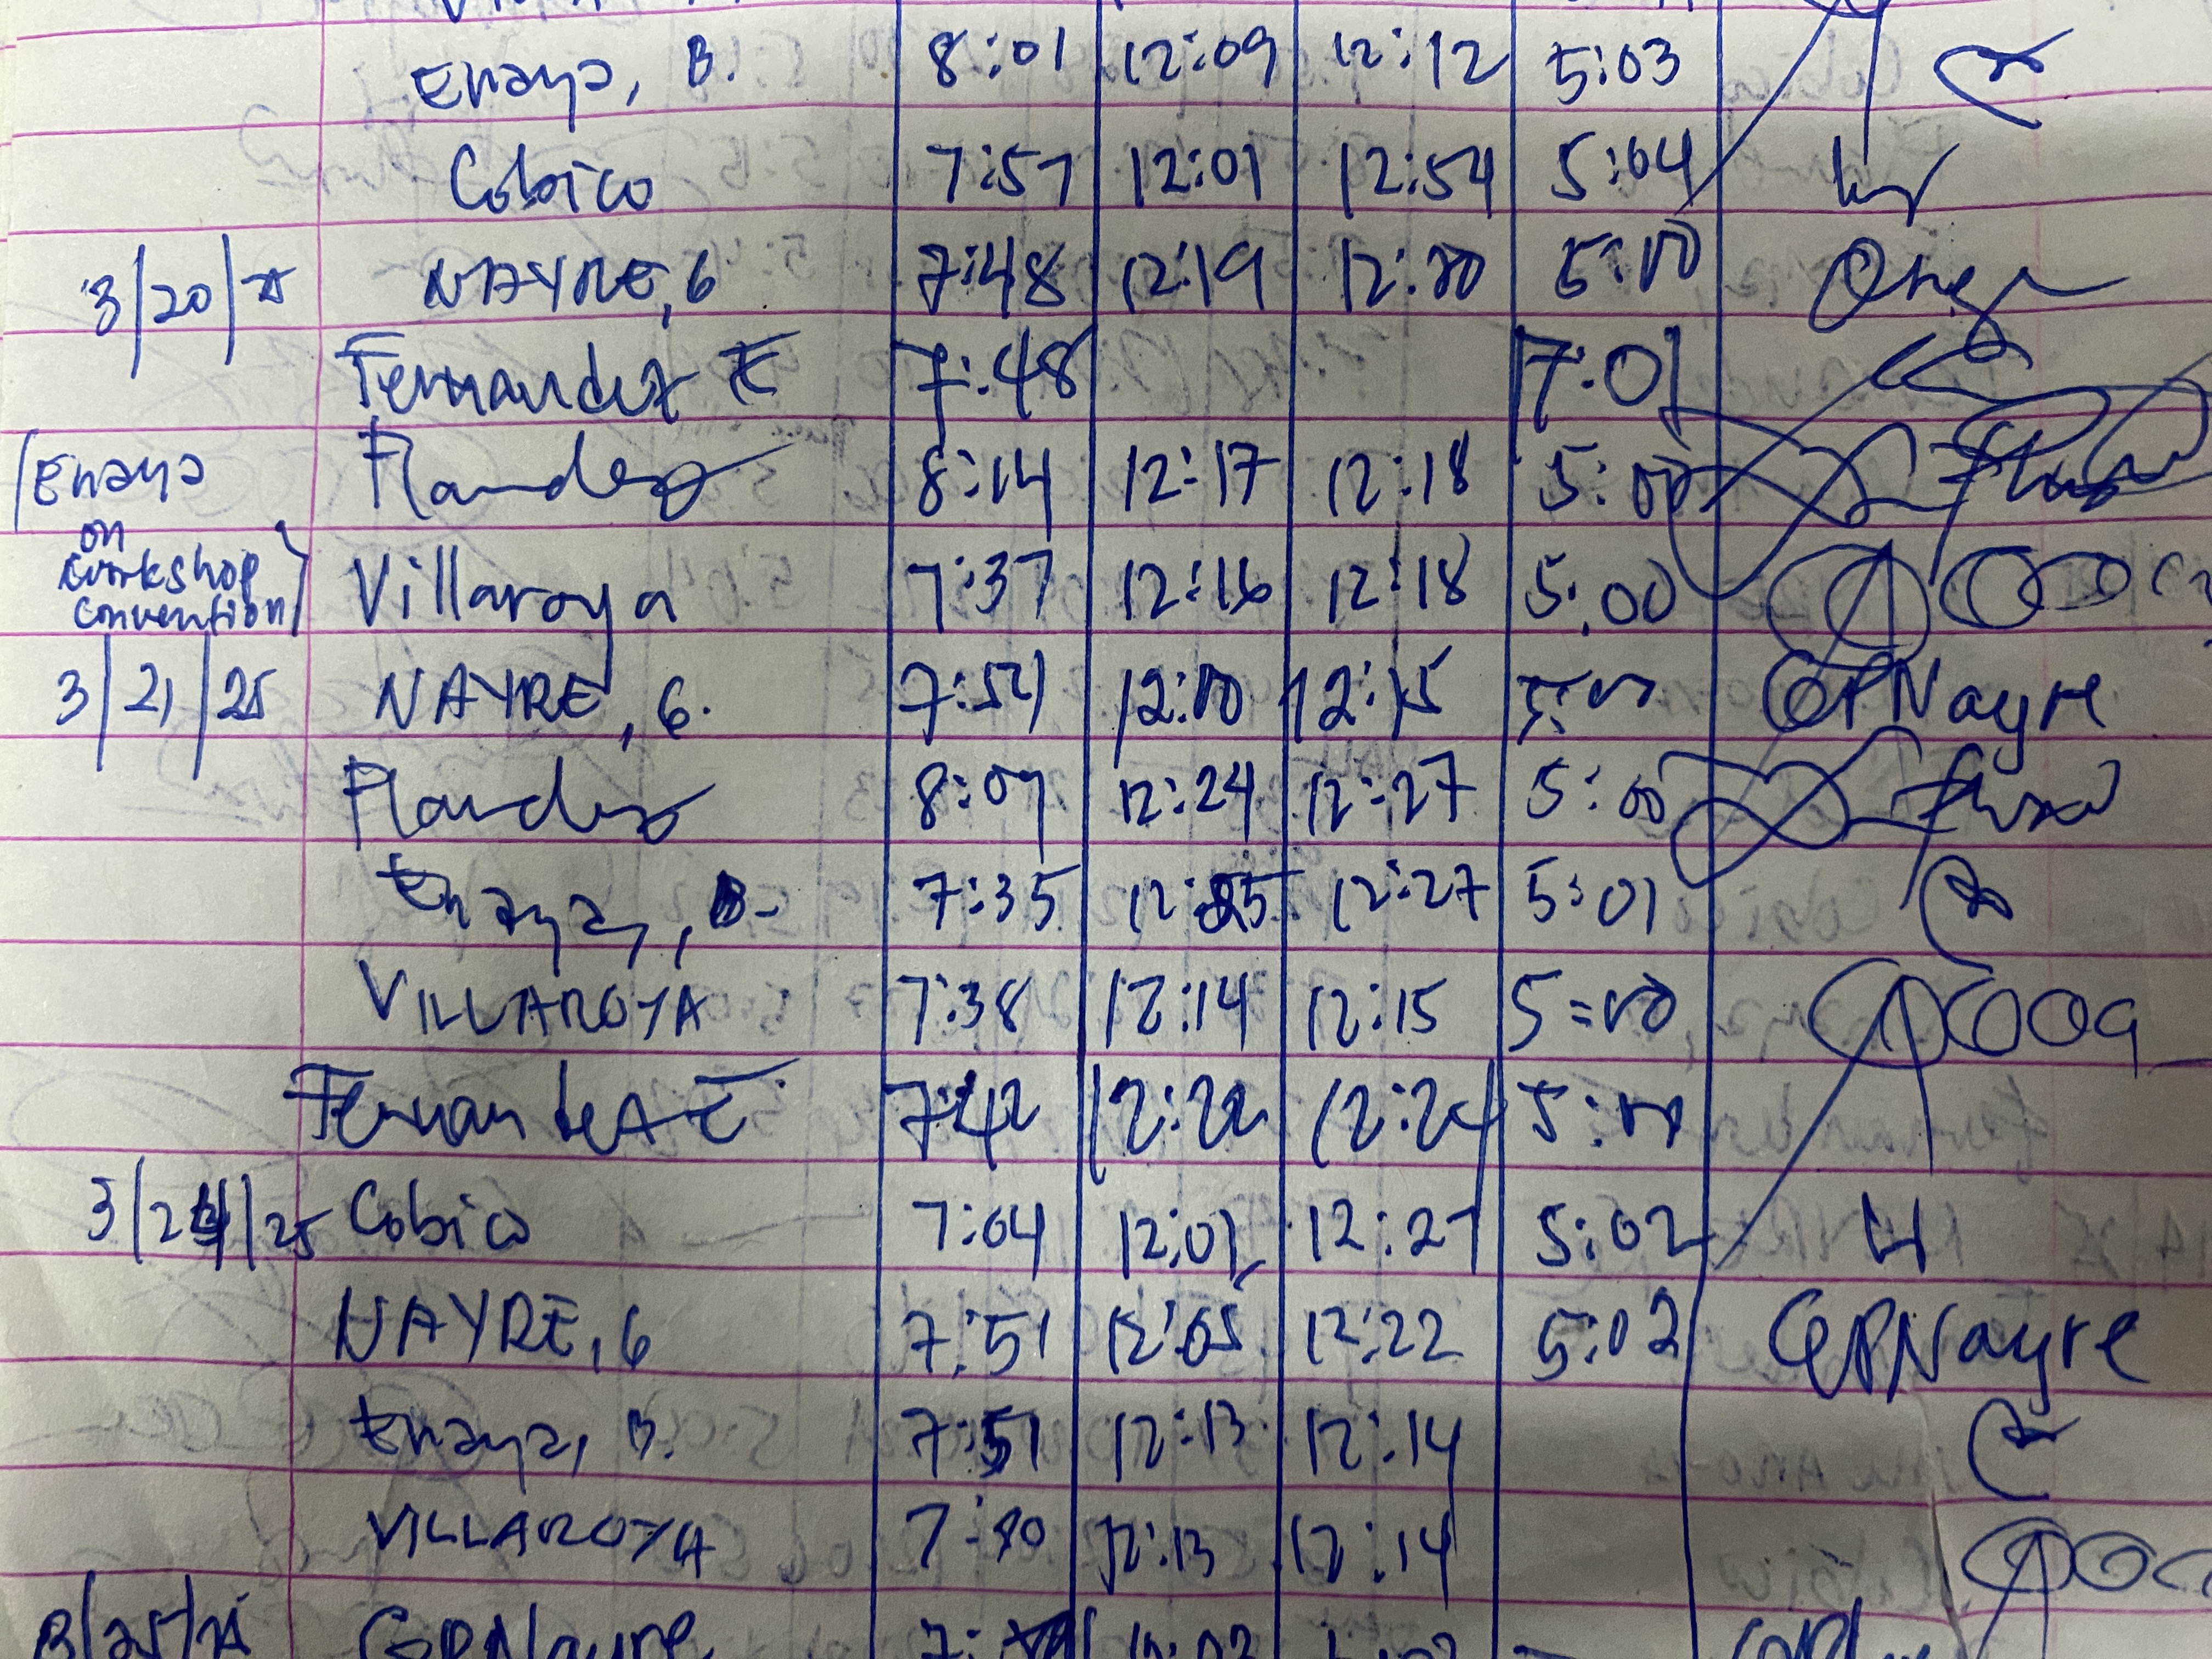 Enaya, B. 8:01 12:09 12:12 5:03
Cobico 7:57 12:01 12:54 5:04
3/20/25 NAYRE, G 7:48 12:19 12:20 5:00
Fernandez E 7:48 7:01
(Enaya on workshop convention) Flandez 8:14 12:17 12:18 5:00
Villaroya 7:37 12:16 12:18 5:00
3/21/25 NAYRE, G. 7:54 12:10 12:15 5:00 GPNayre
Flandez 8:09 12:24 12:27 5:00
Enaya, B. 7:35 12:25 12:27 5:01
VILLAROYA 7:38 12:14 12:15 5:00
Fernandez E 7:42 12:22 12:24 5:00
3/24/25 Cobico 7:04 12:01 12:27 5:02
NAYRE, G 7:51 12:05 12:22 5:02 GPNayre
Enaya, B. 7:51 12:13 12:14
VILLAROYA 12:13 12:14
3/25/25 GPNayre